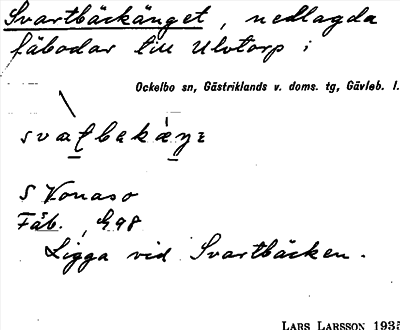 Svartbäckänget, nedlagda
fäbodar till Ulvtorp i
Ockelbo sn, Gästriklands v. doms. tg, Gävleb. l.
S Vonaso
Fäb., G98
Ligga vid Svartbäcken.
LARS LARSSON 1935